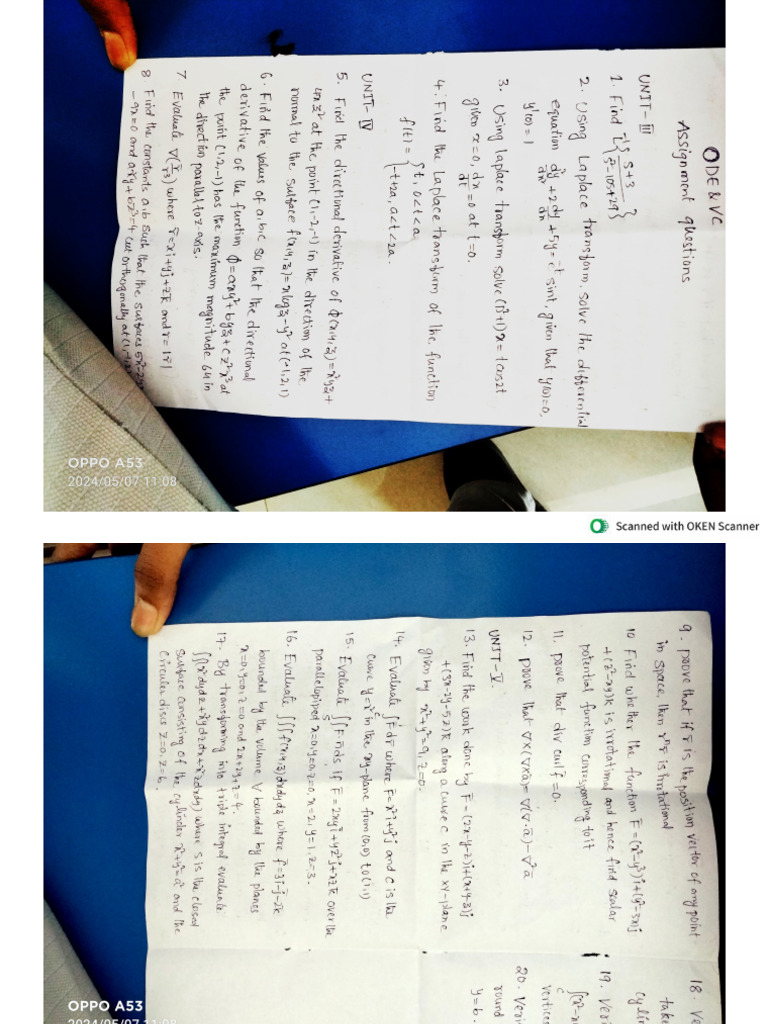 ODE & VC
Assignment questions
UNIT-III
1. Find L⁻¹{ s+3 / s²-10s+29 }
2. Using Laplace transform, solve the differential
equation d²y/dx² + 2 dy/dx + 5y = e⁻ᵗ sint, given that y(0)=0,
y'(0)=1
3. Using Laplace transform solve (D²+1)x = t cos2t
given x=0, dx/dt=0 at t=0.
4. Find the Laplace transform of the function
f(t) = { t, 0<t<a
{ -t+2a, a<t<2a.
UNIT-IV
5. Find the directional derivative of ϕ(x,y,z)=x²yz+
4xz² at the point (1,-2,-1) in the direction of the
normal to the surface f(x,y,z)=xlogz-y² at (-1,2,1)
6. Find the values of a,b,c so that the directional
derivative of the function ϕ=axy²+byz+cz²x³ at
the point (1,2,-1) has the maximum magnitude 64 in
the direction parallel to z-axis.
7 Evaluate ∇(r̄/r³) where r̄=xi+yj+zk and r=|r̄|
8 Find the constants a,b such that the surfaces
-9x=0 and ax²y+bz³=4 cut orthogonally at
OPPO A53
2024/05/07 11:08
Scanned with OKEN Scanner
9. prove that if r̄ is the position vector of any point
in space, then rⁿr̄ is irrotational
10 Find whether the function F̄=(x²-yz)i+(y²-3x)j
+(z²-xy)k is irrotational and hence find scalar
potential function corresponding to it
11. prove that div curl f̄=0.
12. prove that ∇×(∇×ā)=∇(∇·ā)-∇²ā
UNIT-V.
13. Find the work done by F=(2x-y-z)i+(x+y-z)j
+(3x-2y-5z)k along a curve C in the xy-plane
given by x²+y²=9, z=0.
14. Evaluate ∫F·dr̄ where F̄=x²i+y²j and C is the
curve y=x² in the xy-plane from (0,0) to (1,1)
15. Evaluate ∫∫F·n̄ds if F̄=2xyi+yz²j+xzk over the
s
parallelopiped x=0,y=0,z=0,x=2,y=1,z=3.
16. Evaluate ∫∫∫f(x,y,z)dxdydz where f̄=3i-j-2k
bounded by the volume V bounded by the planes
x=0,y=0,z=0 and 2x+2y+z=4.
17. By transforming into triple integral evaluate
∫∫(x³dydz+x²ydzdx+x²zdxdy) where S is the closed
surface consisting of the cylinder x²+y²=a² and the
circular discs z=0, z=b.
18. Ve
take
cylin
19. Veri
c
vertices
20. Veri
round
y=b.
OPPO A53
2024/05/07 11:08